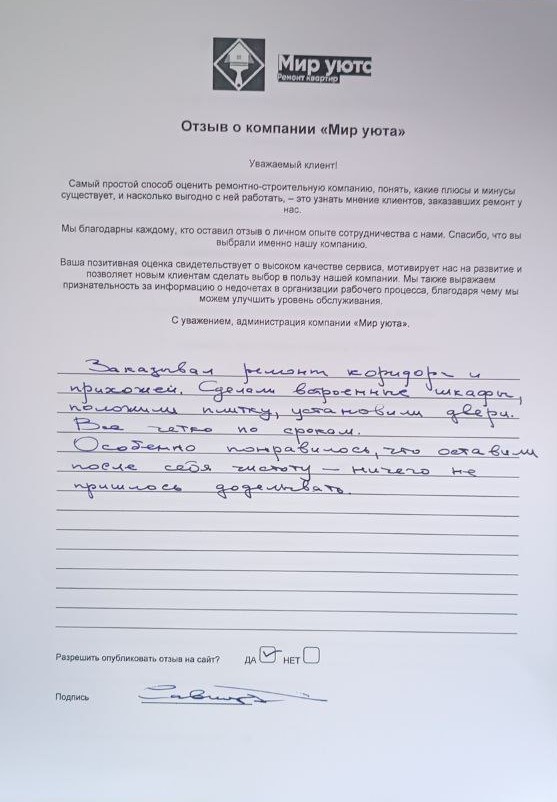 Мир уюта
Ремонт квартир
Отзыв о компании «Мир уюта»
Уважаемый клиент!
Самый простой способ оценить ремонтно-строительную компанию, понять, какие плюсы и минусы
существует, и насколько выгодно с ней работать, – это узнать мнение клиентов, заказавших ремонт у
нас.
Мы благодарны каждому, кто оставил отзыв о личном опыте сотрудничества с нами. Спасибо, что вы
выбрали именно нашу компанию.
Ваша позитивная оценка свидетельствует о высоком качестве сервиса, мотивирует нас на развитие и
позволяет новым клиентам сделать выбор в пользу нашей компании. Мы также выражаем
признательность за информацию о недочетах в организации рабочего процесса, благодаря чему мы
можем улучшить уровень обслуживания.
С уважением, администрация компании «Мир уюта».
Заказывал ремонт коридора и
прихожей. Сделали встроенные шкафы,
положили плитку, установили двери.
Все четко по срокам.
Особенно понравилось, что оставили
после себя чистоту – ничего не
пришлось доделывать.
Разрешить опубликовать отзыв на сайт? ДА НЕТ
Подпись